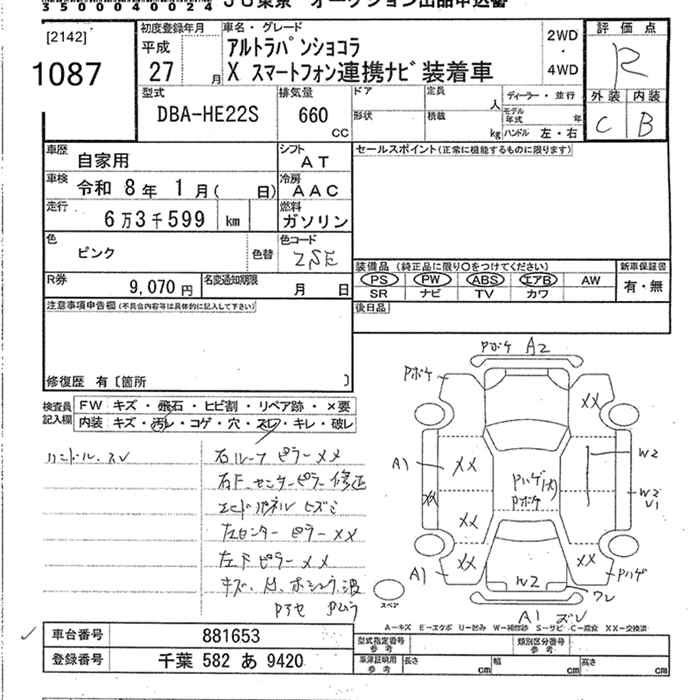 350400024 JU東京 オークション出品申込書
[2142]
1087
初度登録年月
平成
27 月
車名・グレード
アルトラパンショコラ
X スマートフォン連携ナビ装着車
2WD
・
4WD
評価点
R
外装 内装
C B
型式
DBA-HE22S
排気量
660
CC
ドア
形状
定員
人
積載
kg
ディーラー・並行
モデル年式 年
ハンドル 左・右
車歴
自家用
シフト
AT
車検
令和 8年 1月( 日)
冷房
AAC
走行
6万3千599 km
燃料
ガソリン
色
ピンク
色替
色コード
ZSE
R券
9,070円
名変通知期限
月 日
セールスポイント(正常に機能するものに限ります)
装備品 (純正品に限り○をつけてください)
PS PW ABS エアB AW
SR ナビ TV カワ
新車保証書
有・無
後日品
注意事項申告欄(不具合内容等は具体的に記入して下さい)
修復歴 有〔箇所 〕
検査員
記入欄
FW キズ・飛石・ヒビ割・リペア跡・×要
内装 キズ・汚レ・コゲ・穴・スレ・キレ・破レ
ハンドル、スレ
右ルーフピラーXX
右F、センターピラー修正
エンドパネルヒズミ
左センターピラーXX
左FピラーXX
Pボケ A2
Pボケ
XX
A1
XX
XX
XX
Pハゲ(大)
Pボケ
W2
W2
XX
XX
A1
W2
Pハゲ
ワレ
A1 ズレ
スペア
A－キズ E－エクボ U－凹み W－補修跡 S－サビ C－腐食 XX－交換済
車台番号
881653
登録番号
千葉 582 あ 9420
型式指定番号
参考
類別区分番号
参考
車庫証明用
参考
長さ cm
幅 cm
高さ cm